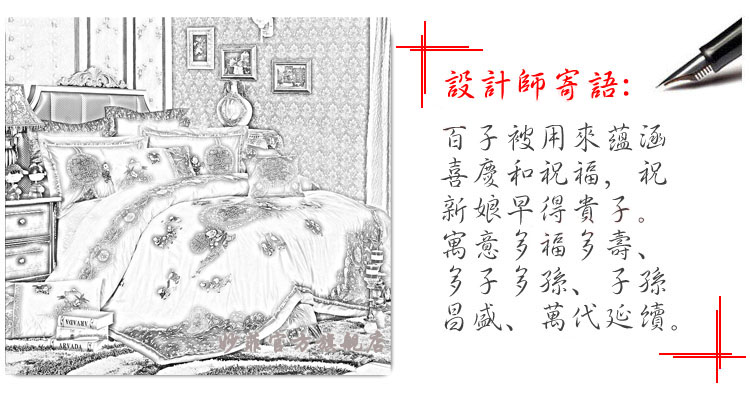 設計師寄語:
百子被用來蘊涵
喜慶和祝福，祝
新娘早得貴子。
寓意多福多壽、
多子多孫、子孫
昌盛、萬代延續。
ARVADA
官方旗舰店